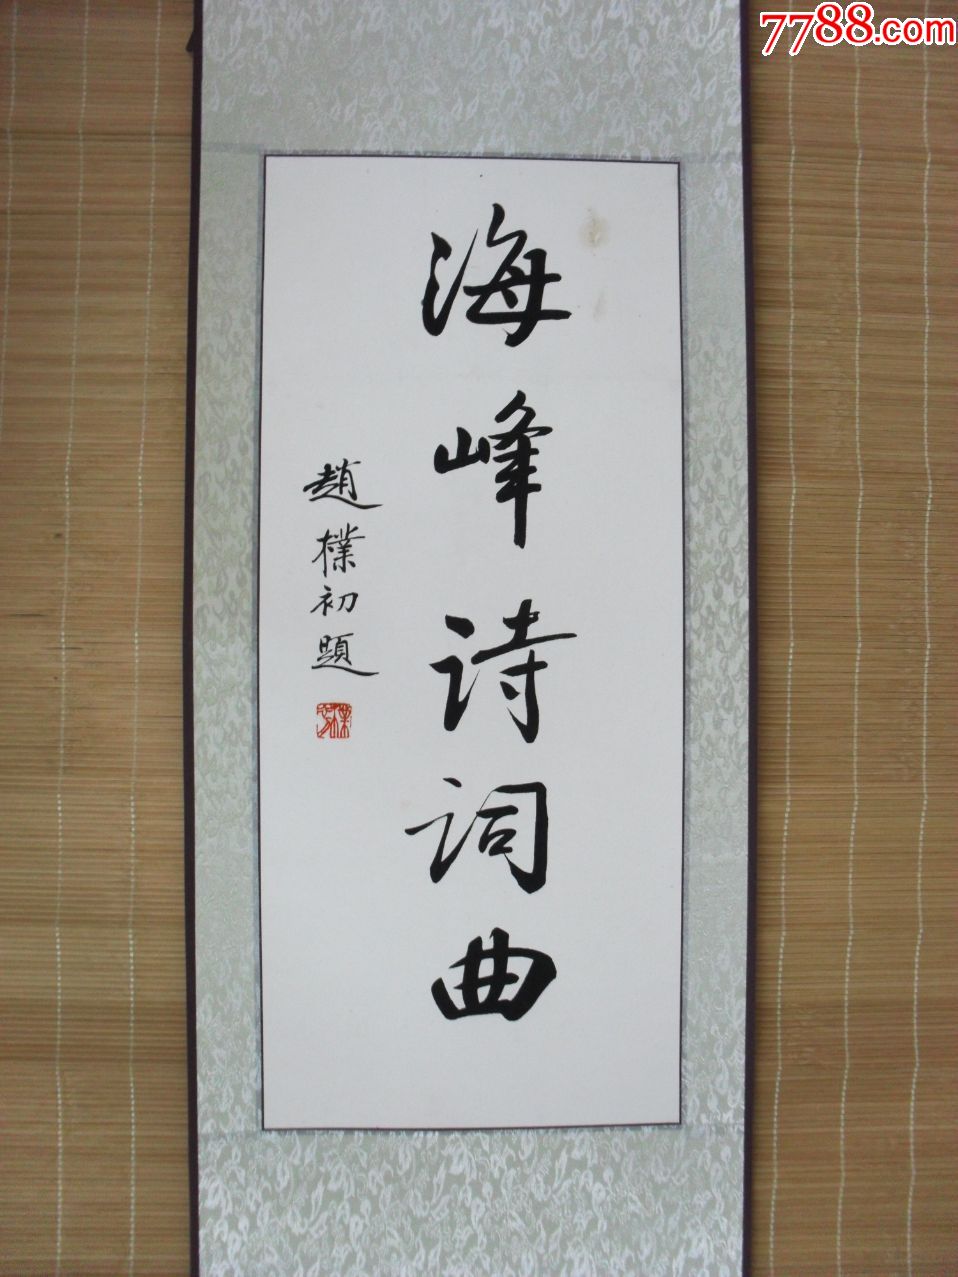 7788.com
海峰诗词曲
趙樸初題